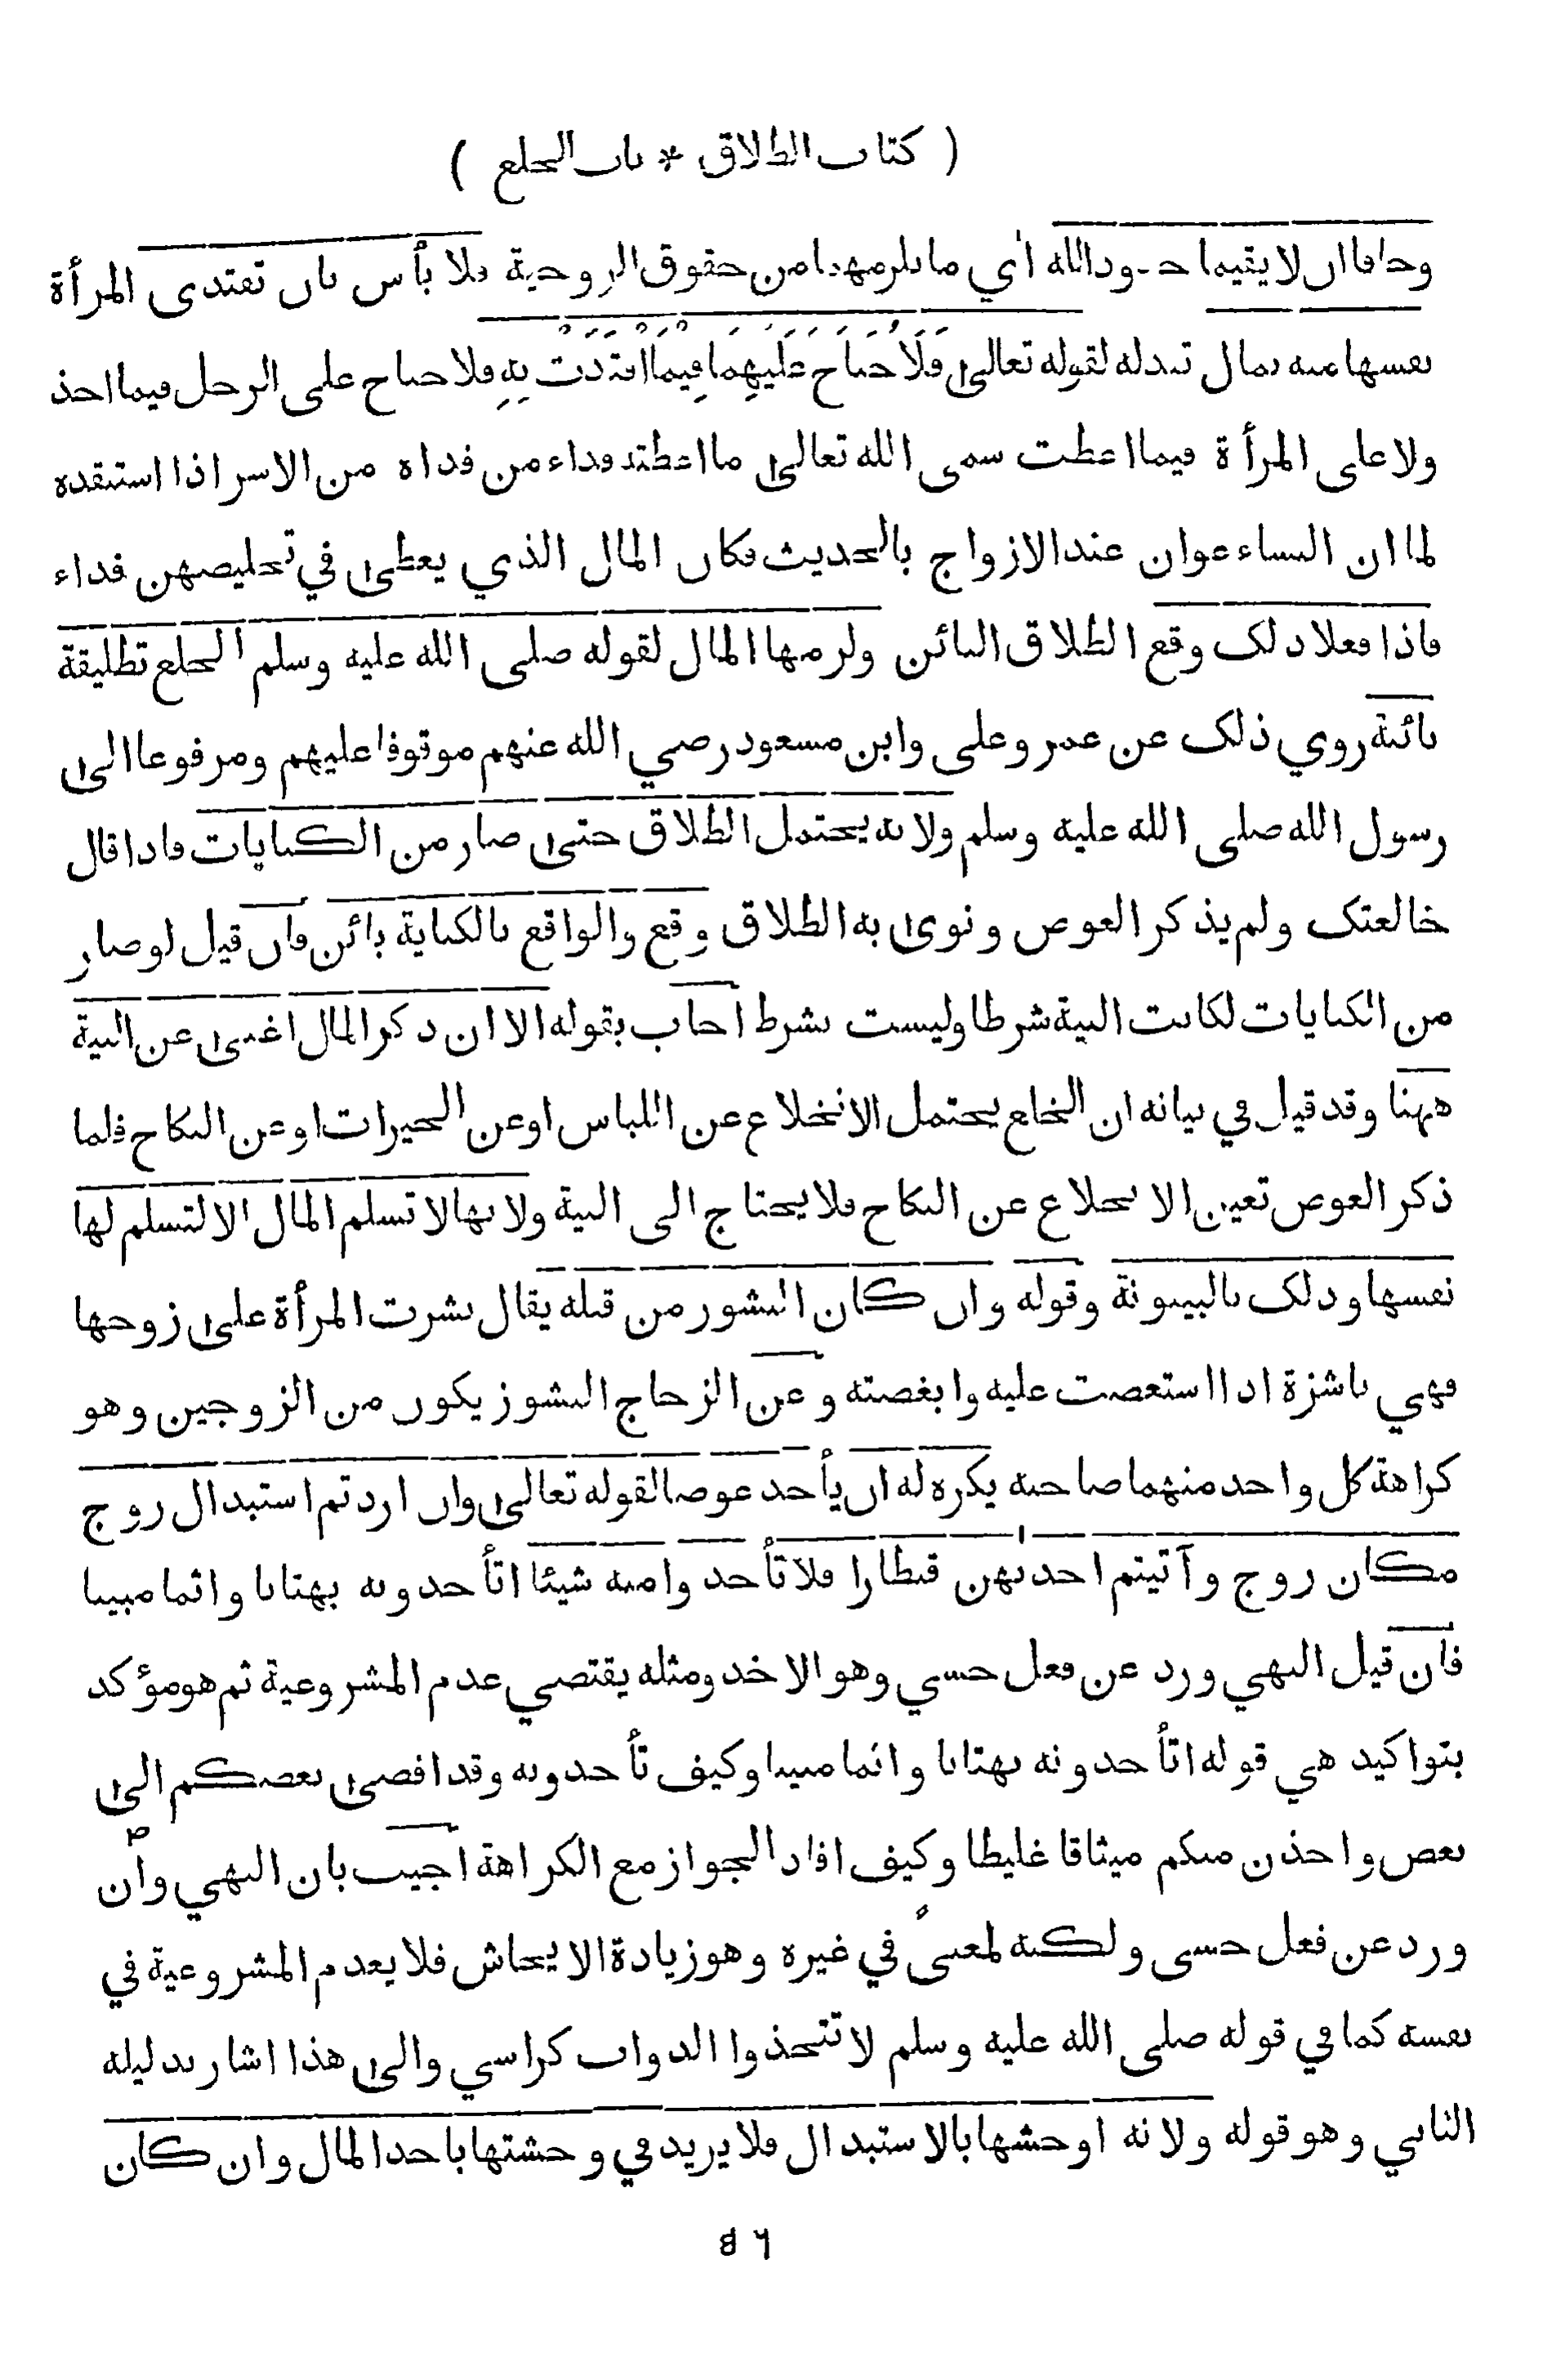 ( كتاب الطلاق * باب الخلع )
وخافا ان لا يقيما حدود الله اي ما يلزمهما من حقوق الزوجية فلا بأس بان تفتدى المرأة
نفسها منه بمال تبدله لقوله تعالى فَلَا جُنَاحَ عَلَيْهِمَا فِيمَا افْتَدَتْ بِهِ فلا جناح على الرجل فيما اخذ
ولا على المرأة فيما اعطت سمى الله تعالى ما اعطته فداء من فداه من الاسر اذا استنقذه
لما ان النساء عوان عند الازواج بالحديث فكان المال الذي يعطى في تخليصهن فداء
فاذا فعلا ذلك وقع الطلاق البائن ولزمها المال لقوله صلى الله عليه وسلم الخلع تطليقة
بائنة روي ذلك عن عمر وعلى وابن مسعود رضي الله عنهم موقوفا عليهم ومرفوعا الى
رسول الله صلى الله عليه وسلم ولانه يحتمل الطلاق حتى صار من الكنايات فاذا قال
خالعتك ولم يذكر العوض ونوى به الطلاق وقع والواقع بالكناية بائن فان قيل لو صار
من الكنايات لكانت النية شرطا وليست بشرط اجاب بقوله الا ان ذكر المال اغنى عن النية
ههنا وقد قيل في بيانه ان الخلع يحتمل الانخلاع عن اللباس او عن الخيرات او عن النكاح فلما
ذكر العوض تعين الانخلاع عن النكاح فلا يحتاج الى النية ولانها لا تسلم المال الا لتسلم لها
نفسها وذلك بالبينونة وقوله وان كان النشوز من قبله يقال نشزت المرأة على زوجها
فهي ناشزة اذا استعصت عليه وابغضته وعن الزجاج النشوز يكون من الزوجين وهو
كراهة كل واحد منهما صاحبه يكره له ان يأخذ عوضا لقوله تعالى وان اردتم استبدال زوج
مكان زوج وآتيتم احدىهن قنطارا فلا تأخذوا منه شيئا اتأخذونه بهتانا واثما مبينا
فان قيل النهي ورد عن فعل حسي وهو الاخذ ومثله يقتضي عدم المشروعية ثم هو مؤكد
بتواكيد هي قوله اتأخذونه بهتانا واثما مبينا وكيف تأخذونه وقد افضى بعضكم الى
بعض واخذن منكم ميثاقا غليظا وكيف افاد الجواز مع الكراهة اجيب بان النهي وان
ورد عن فعل حسى ولكنه لمعنىً في غيره وهو زيادة الايحاش فلا يعدم المشروعية في
نفسه كما في قوله صلى الله عليه وسلم لا تتخذوا الدواب كراسي والى هذا اشار بدليله
الثاني وهو قوله ولانه اوحشها بالاستبدال فلا يزيد في وحشتها باخذ المال وان كان